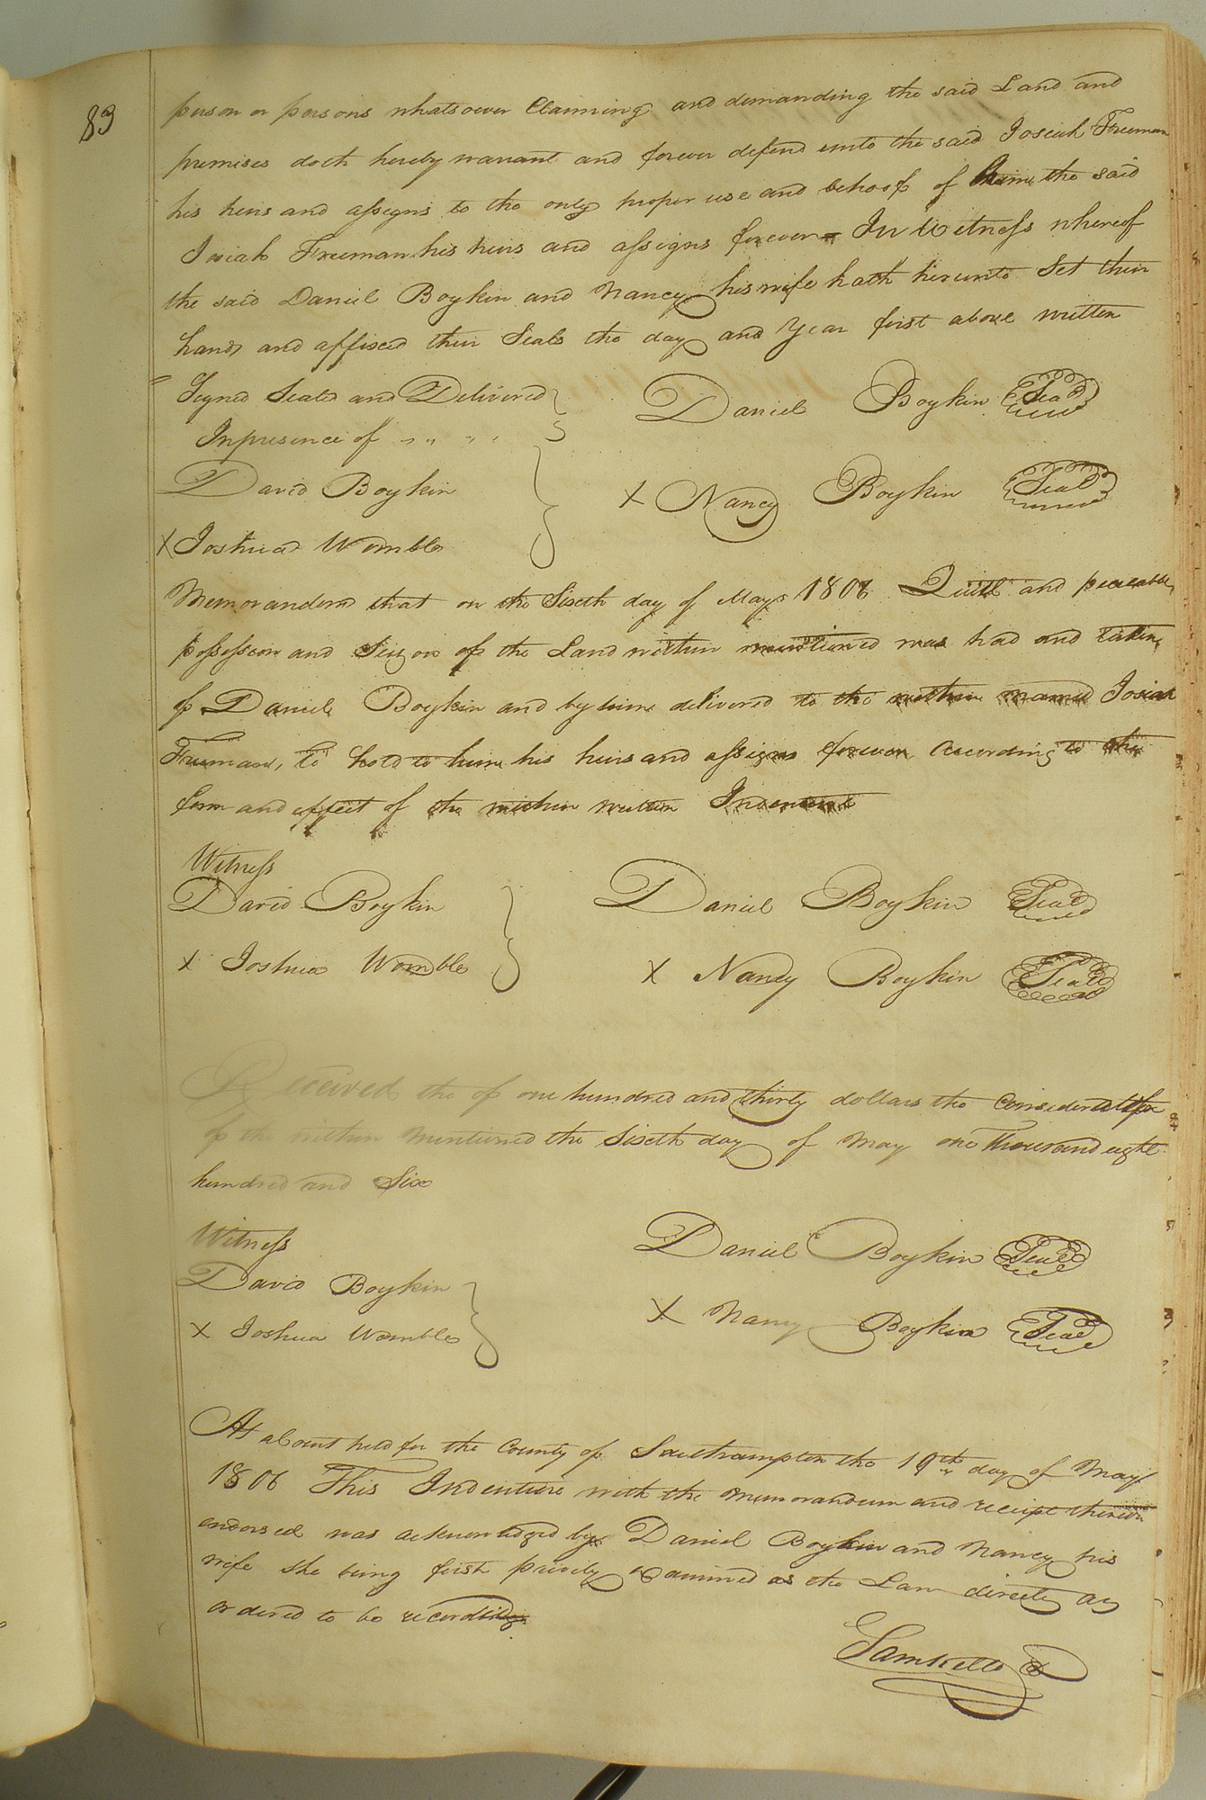 83
person or persons whatsoever Claiming and demanding the said Land and
premises doth hereby warrant and forever defend unto the said Josiah Freeman
his heirs and assigns to the only proper use and behoof of him the said
Josiah Freeman his heirs and assigns forever In Witness whereof
the said Daniel Boykin and Nancy his wife hath hereunto Set their
hands and affixed their Seals the day and Year first above written
Signed Sealed and Delivered
In presence of
Daniel Boykin Seal
David Boykin
X Nancy Boykin Seal
X Joshua Womble
Memorandum that on the Sixth day of May 1806 Quiet and peaceable
possession and Seizon of the Land within mentioned was had and taken
of Daniel Boykin and by him delivered to the within named Josiah
Freeman, to hold to him his heirs and assigns forever According to the
form and effect of the within written Indenture
Witness
David Boykin
Daniel Boykin Seal
X Joshua Womble
X Nancy Boykin Seal
Received the of one hundred and thirty dollars the Consideration
of the within mentioned the Sixth day of May one Thousand eight
hundred and Six
Witness
Daniel Boykin Seal
David Boykin
X Nancy Boykin Seal
X Joshua Womble
At a Court held for the County of Southampton the 19th day of May
1806 This Indenture with the memorandum and receipt thereon
endorsed was acknowledged by Daniel Boykin and Nancy his
wife she being first privily Examined as the Law directs as
ordered to be recorded